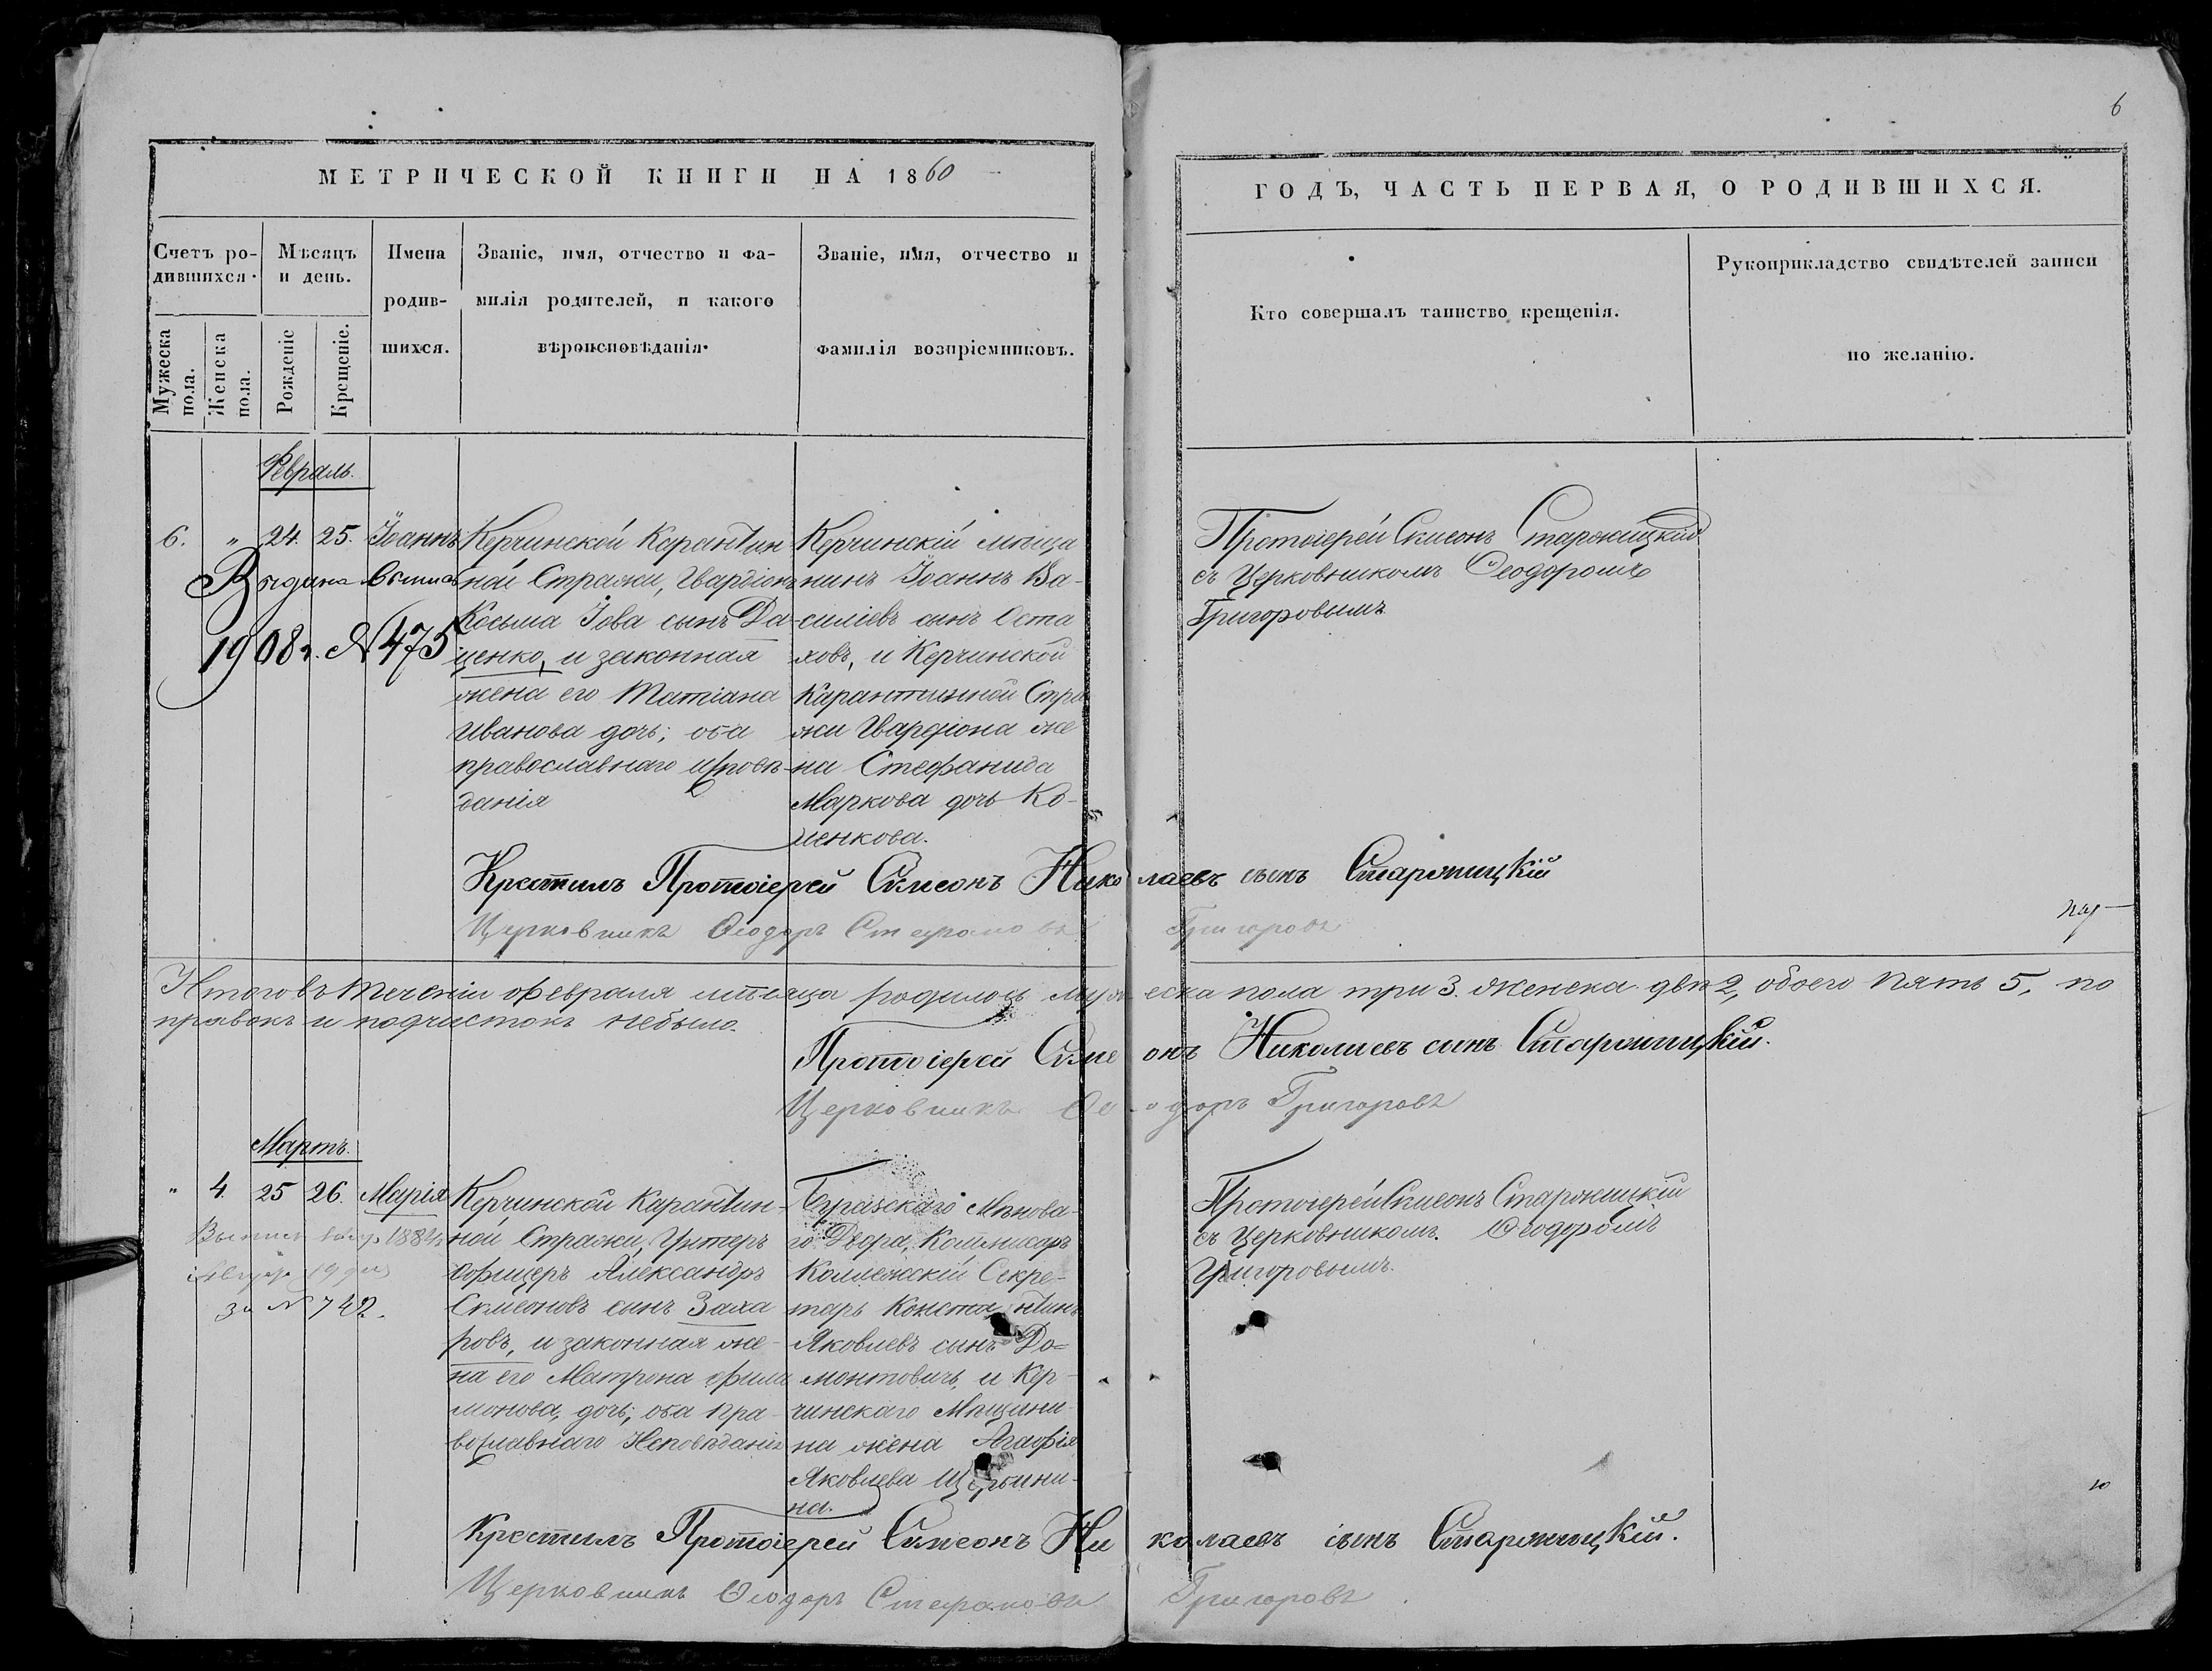 6
МЕТРИЧЕСКОЙ КНИГИ НА 1860
ГОДЪ, ЧАСТЬ ПЕРВАЯ, О РОДИВШИХСЯ.
Счетъ ро-
дившихся.
Мужеска пола.
Женска пола.
Мѣсяцъ
и день.
Рожденіе
Крещеніе.
Имена
родив-
шихся.
Званіе, имя, отчество и фа-
милія родителей, и какого
вѣроисповѣданія.
Званіе, имя, отчество и
фамилія возпріемниковъ.
Кто совершалъ таинство крещенія.
Рукоприкладство свидѣтелей записи
по желанію.
Февраль.
6. " 24. 25. Іоаннъ
Выдана выпись
1908 г. № 475
Керчинской Карантин
ной Стражи, Гвардіонъ
Косьма Іова сынъ Да-
ценко, и законная
жена его Татіана
Иванова дочь; оба
православнаго исповѣ-
данія
Керчинскій мѣща
нинъ Іоаннъ Ва-
силіевъ сынъ Оста
ховъ, и Керчинской
Карантинной Стра
жи Гвардіона же
на Стефанида
Маркова дочь Ко-
ценкова.
Протоіерей Симеонъ Старожицкій
съ Церковникомъ Ѳеодоромъ
Григоровымъ
Крестилъ Протоіерей Симеонъ Николаевъ сынъ Старожицкій
Церковникъ Ѳеодоръ Стефановъ Григоровъ
Итого въ теченіи февраля мѣсяца родилось мужеска пола три 3. женска двѣ 2, обоего пять 5, по
правокъ и подчистокъ небыло.
Протоіерей Симеонъ Николаевъ сынъ Старожицкій.
Церковникъ Ѳеодоръ Григоровъ
Мартъ.
" 4. 25 26. Марія
за № 742.
Керчинской Карантин-
ной Стражи, Унтеръ
Офицеръ Александръ
Симеоновъ сынъ Заха
ровъ, и законная же-
на его Матрона Фили
монова, дочь; оба пра-
вославнаго Исповѣданія
Бугазскаго Мѣнова-
го Двора, Коммисаръ
Коллежскій Секре-
тарь Константинъ
Яковлевъ сынъ До-
монтовичъ, и Кер-
чинскаго Мѣщани-
на жена Агафія
Яковлева Щербини-
на.
Протоіерей Симеонъ Старожицкій
съ Церковникомъ Ѳеодоромъ
Григоровымъ.
Крестилъ Протоіерей Симеонъ Николаевъ сынъ Старожицкій.
Церковникъ Ѳеодоръ Стефановъ Григоровъ